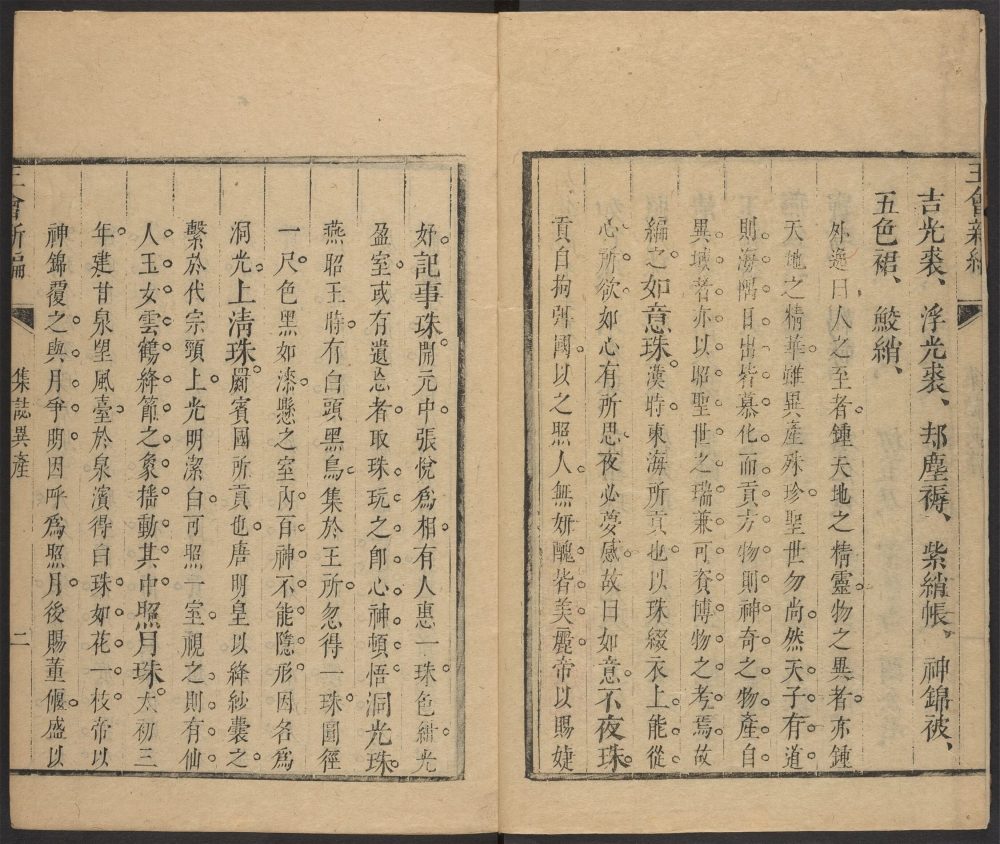 王會新編
吉光裘、浮光裘、却塵褥、紫綃帳、神錦被、
五色裙、鮫綃、
外運曰人之至者鍾天地之精靈物之異者亦鍾
天地之精華雖異產殊珍聖世勿尚然天子有道
則海隅日出皆慕化而貢方物則神奇之物產自
異域者亦以昭聖世之瑞兼可資博物之考焉故
編之如意珠漢時東海所貢也以珠綴衣上能從
心所欲如心有所思夜必夢感故曰如意不夜珠
貢自拘弭國以之照人無妍醜皆美麗帝以賜婕
妤記事珠開元中張悅爲相有人惠一珠色紺光
盈室或有遺忘者取珠玩之卽心神頓悟洞光珠
燕昭王時有白頭黑鳥集於王所忽得一珠圓徑
一尺色黑如漆懸之室內百神不能隱形因名爲
洞光上清珠罽賓國所貢也唐明皇以絳紗囊之
繫於代宗頸上光明潔白可照一室視之則有仙
人玉女雲鶴絳節之象搖動其中照月珠太初三
年建甘泉望風臺於泉濱得白珠如花一枝帝以
神錦覆之與月爭明因呼爲照月後賜董偃盛以
王會新編
集誌異產
二